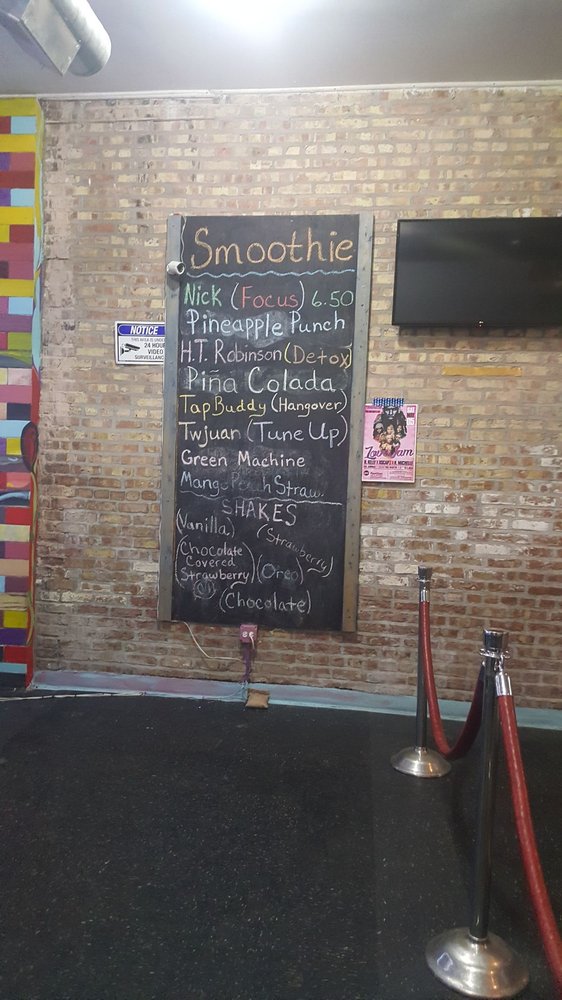 Smoothie
Nick (Focus) 6.50
Pineapple Punch
H.T. Robinson (Detox)
Piña Colada
Tap Buddy (Hangover)
Twjuan (Tune Up)
Green Machine
Mango Peach Straw.
SHAKES
(Vanilla)
(Strawberry)
(Chocolate
Covered
Strawberry)
(Oreo)
(Chocolate)
NOTICE
THIS AREA IS UNDER
24 HOUR
VIDEO
SURVEILLANCE
Love Jam